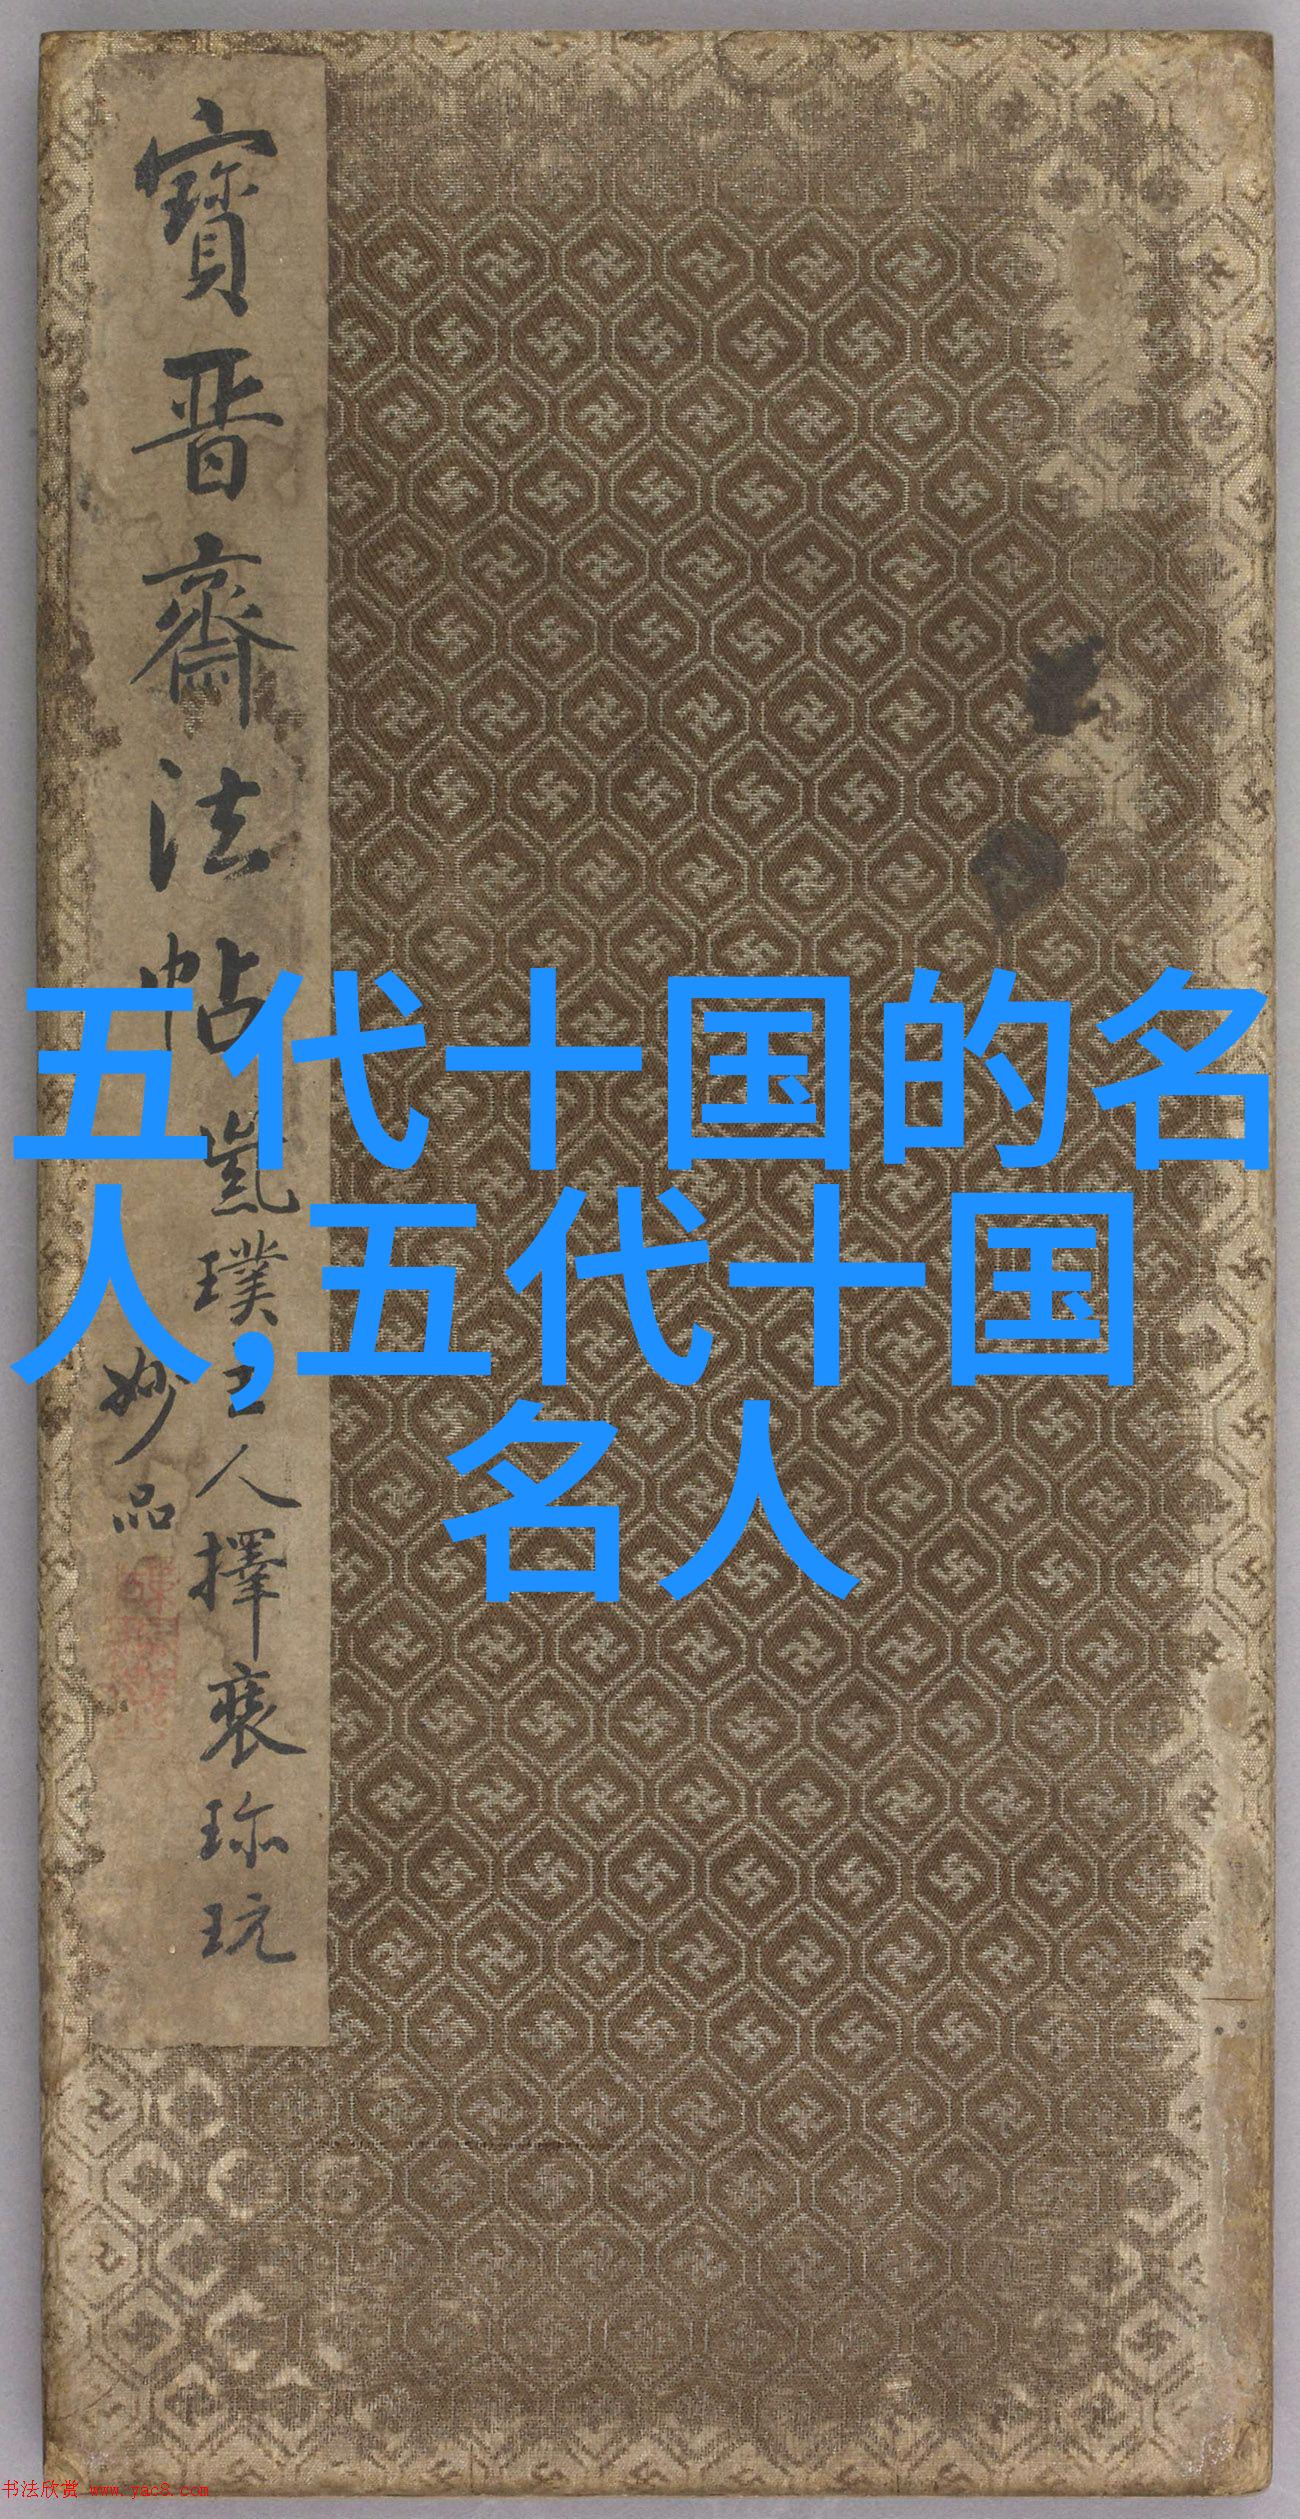 寳晋齋法帖
嵗璞主人擇裛珎玩
妙品
五代十国的名
人,五代十国
名人
书法欣赏 www.yac8.com